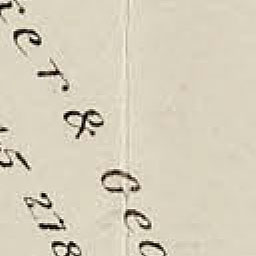 ker & Geo
15 278